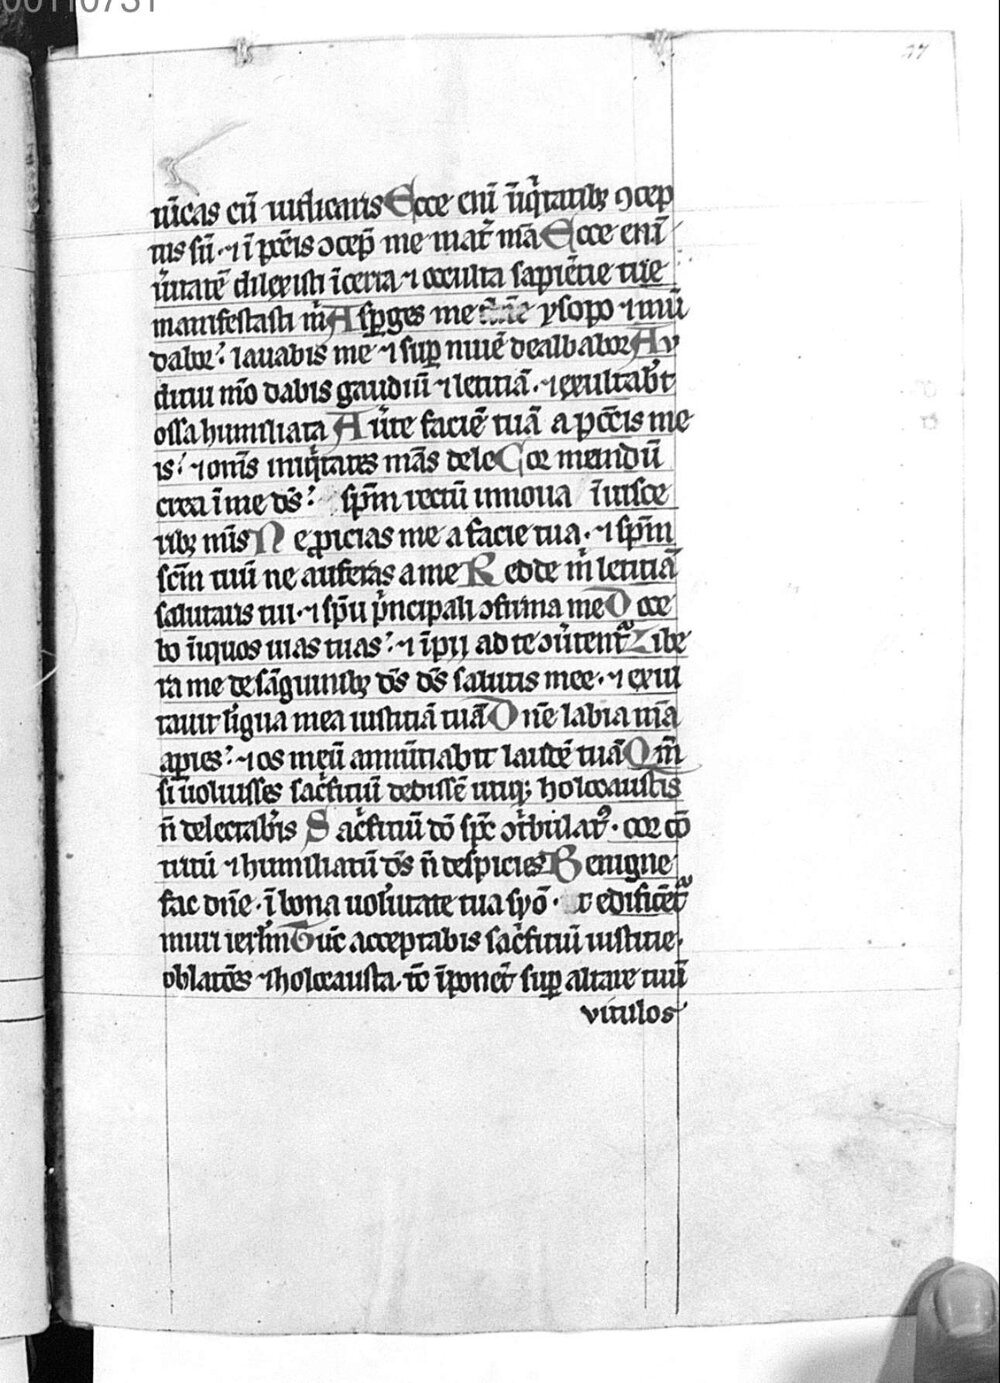 00110731
27
uīcas cū iudicaris Ecce enī īiq̇tatibȝ ꝯcep
tus sū · ⁊ ī pcc̄is ꝯcep̄ me mat̄ m̄a Ecce enī
u̇itatē dilexisti īcerta ⁊ occulta sapiētie tue
manifestasti m̄ Asꝑges me dn̄e ysopo ⁊ mū
dabor: lauabis me ⁊ suꝑ niuē dealbabor Au
ditui mō dabis gaudiū ⁊ letitiā · ⁊ exultabt̄
ossa humiliata Au̇te faciē tuā a pcc̄is me
is: ⁊ om̄s iniq̇tates mās dele Cor mundū
crea ī me ds̄: sp̄m rectū innoua ī uisce
ribȝ mīs Ne ꝓicias me a facie tua · ⁊ sp̄m
scm̄ tuū ne auferas a me Redde m̄ letitiā
salutaris tui · ⁊ sp̄u p̄ncipali ꝯfirma me Doce
bo īiquos uias tuas: ⁊ īpij ad te ꝯu̇tent̄ Libe
ra me de sāguinibȝ ds̄ ds̄ salutis mee · ⁊ exul
tauit līgua mea iustitiā tuā Dn̄e labia m̄a
apies: ⁊ os meū annūtiabit laudē tuā Qm̄
si uoluisses sac̄fitiū dedissē utiqȝ holocaustis
n̄ delectab̄is Sac̄fitiū dō sp̄c ꝯt̄bulatꝰ · cor cō
tritū ⁊ humiliatū ds̄ n̄ despicies Benigne
fac dn̄e · ī bona uolūtate tua syō · ut edificēt̄
muri ierl̄m Tūc acceptabis sac̄fitiū iustitie ·
oblatōes ⁊ holocausta · tc̄ īponet̄ suꝑ altare tuū
vitulos